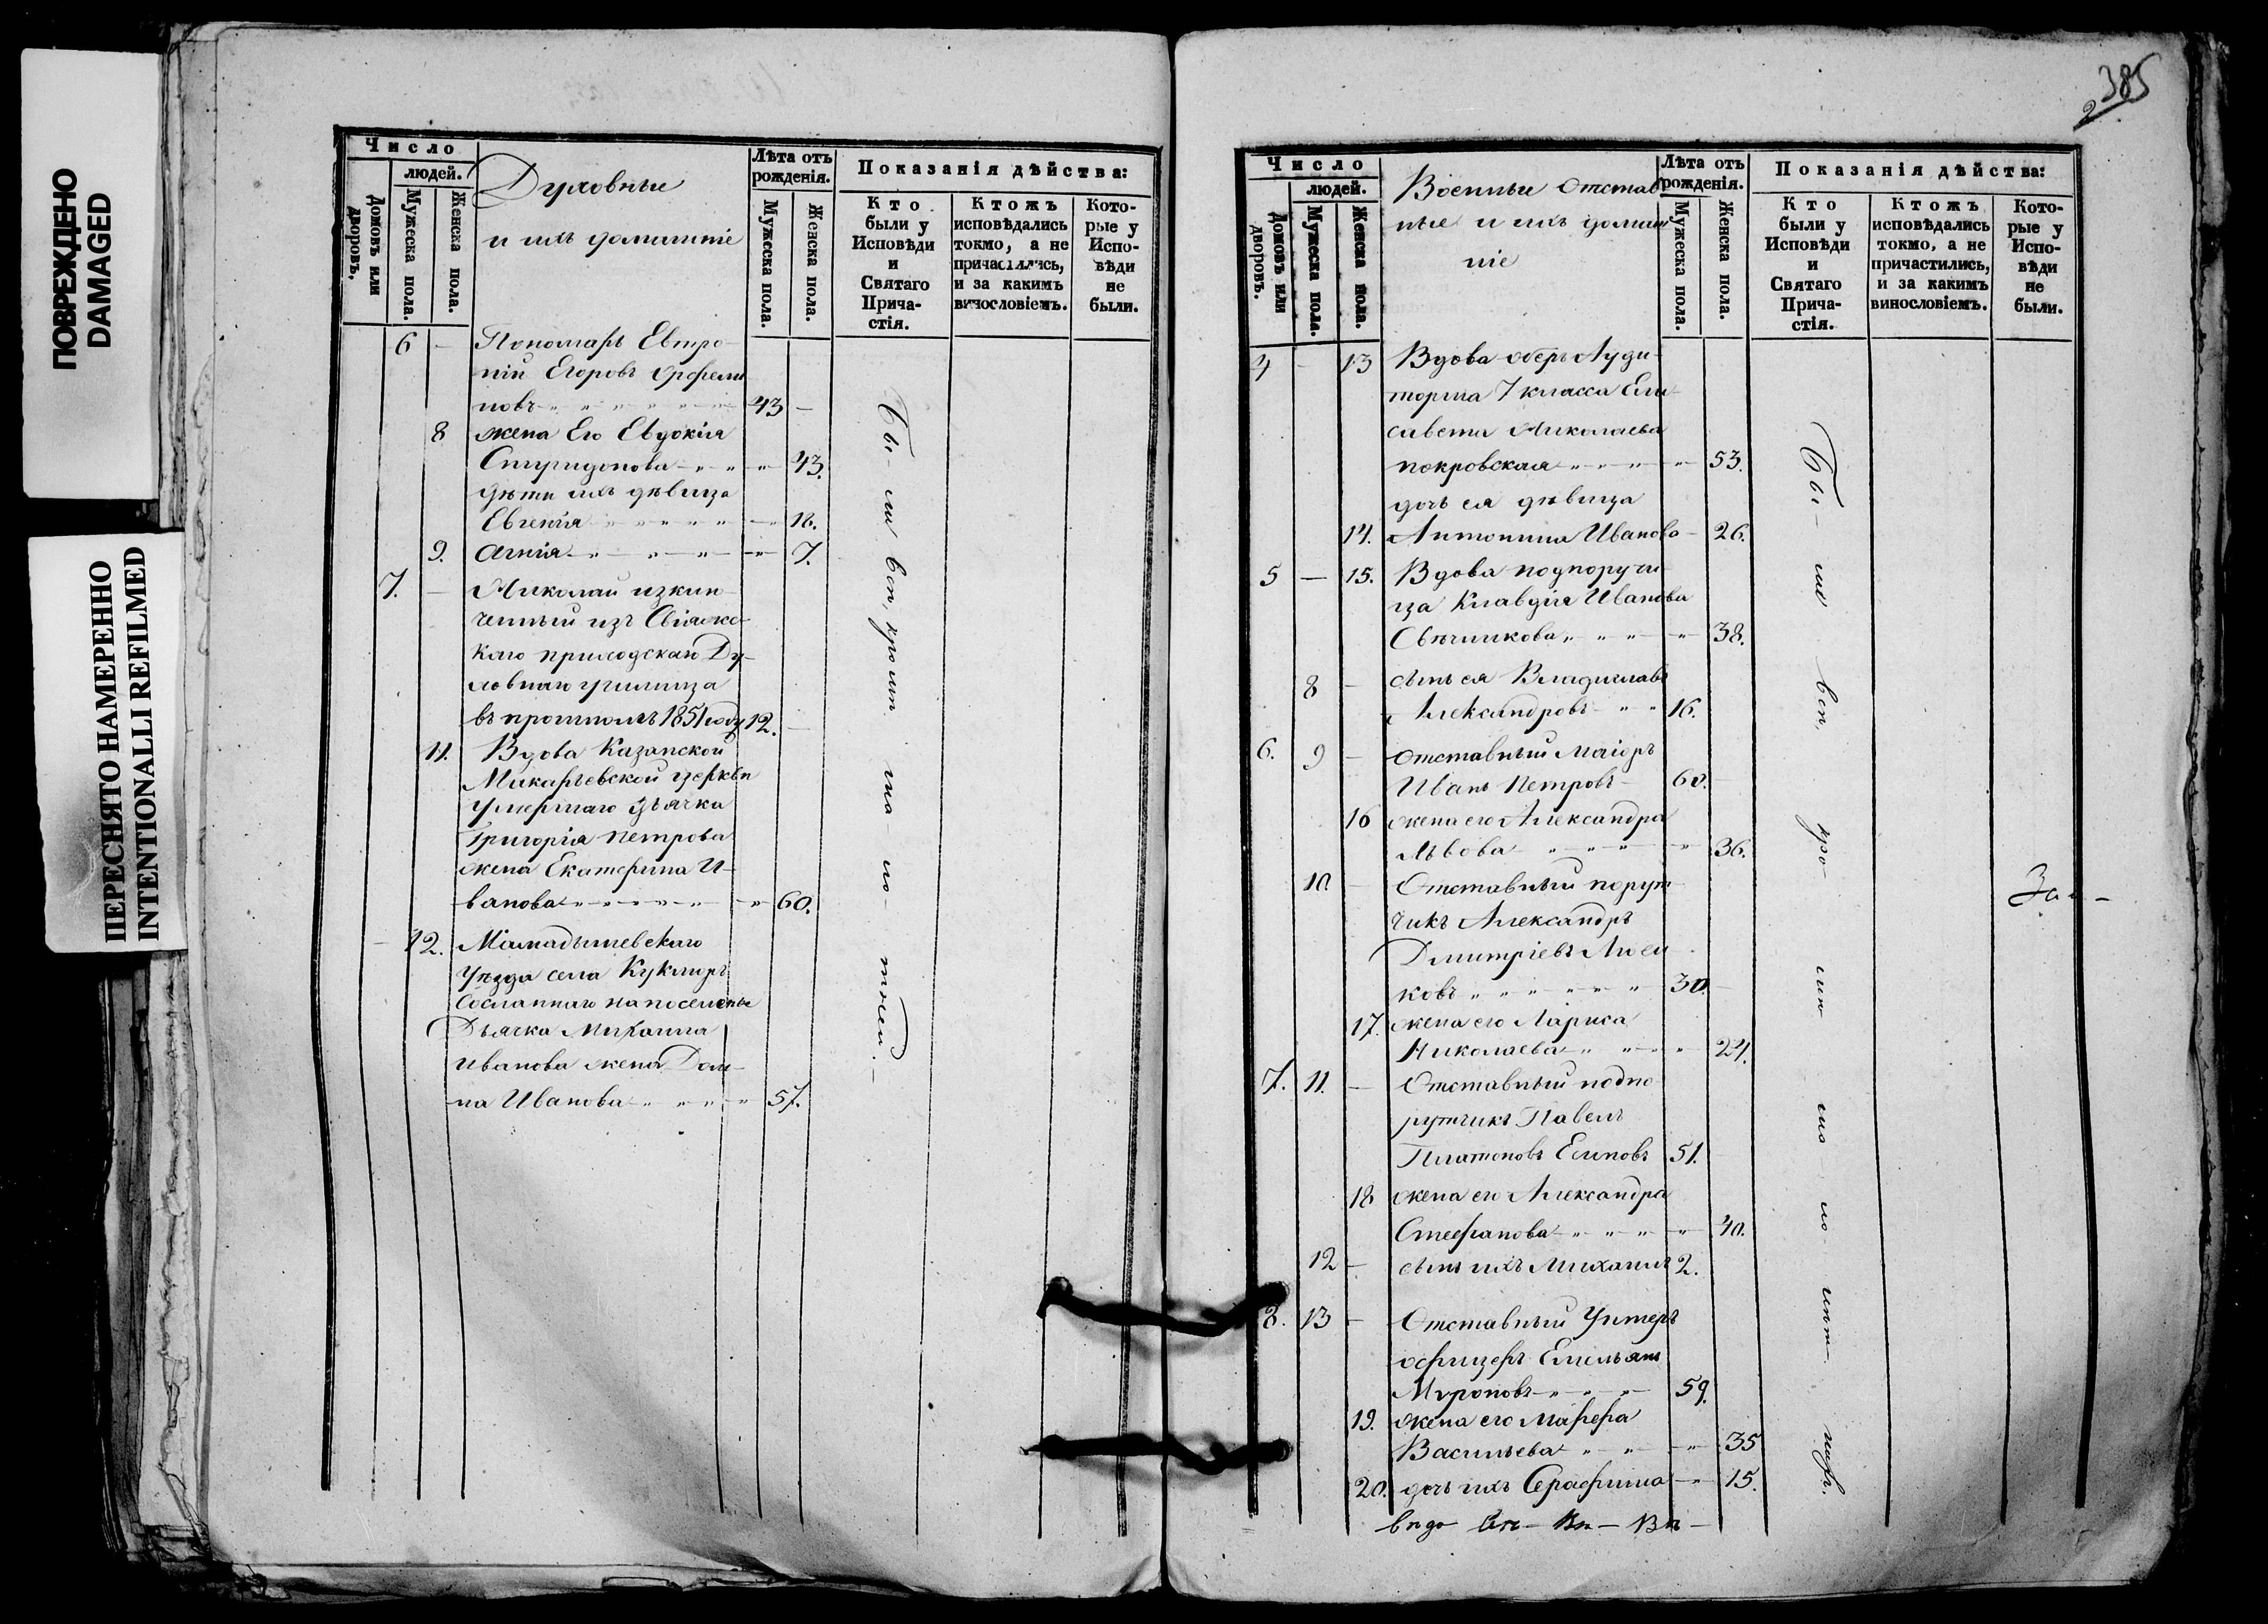 ПОВРЕЖДЕНО
DAMAGED
ПЕРЕСНЯТО НАМЕРЕННО
INTENTIONALLI REFILMED
Число
людей.
Домовъ или дворовъ.
Мужеска пола.
Женска пола.
Духовные
и ихъ домашніе
Лѣта отъ рожденія.
Мужеска пола.
Женска пола.
Показанія дѣйства:
Кто были у Исповѣди и Святаго Прича-стія.
Ктожъ исповѣдались токмо, а не причастились, и за какимъ винословіемъ.
Кото-рые у Испо-вѣди не были.
6 - Пономарь Евтро-
пій Егоровъ
новъ 43 -
8 жена Его Евдокія
Спиридонова 43.
дѣти ихъ дѣвица
Евгенія 16.
9. Агнія 7.
7. - Николай изклю-
ченный изъ Свіяжс-
каго приходскаго Ду-
ховнаго училища
въ прошломъ 1851 году 12. -
11. Вдова Казанской
Макарьевской церкви
умершаго дьячка
Григорія Петрова
жена Екатерина И-
ванова 60.
- 12. Мамадышевскаго
Уѣзда села Кукморъ
Сосланнаго на поселенье
Дьячка Михаила
Иванова жена Дом-
на Иванова 57.
Бы-
ли
385
2
Число
людей.
Домовъ или дворовъ.
Мужеска пола.
Женска пола.
Военные отстав-
ные и ихъ домаш
ніе
Лѣта отъ рожденія.
Мужеска пола.
Женска пола.
Показанія дѣйства:
Кто были у Исповѣди и Святаго Прича-стія.
Ктожъ исповѣдались токмо, а не причастились, и за какимъ винословіемъ.
Кото-рые у Испо-вѣди не были.
4 - 13 Вдова оберъ Ауди-
торша 7 класса Ели-
савета Николаева
покровская 53.
дочь ея дѣвица
14. Антонина Иванова - 26.
5 - 15. Вдова подпоручи-
ца Клавдія Иванова
Свѣчникова 38.
8 - сынъ ея Владиславъ
Александровъ 16.
6. 9 - Отставный Маіоръ
Иванъ Петровъ 60.
16 жена его Александра
Львова 36.
10. - Отставный порут-
чикъ Александръ
Дмитріевъ
ковъ 30. -
17. жена его Лариса
Николаева 24.
7. 11. - Отставный подпо
рутчикъ Павелъ
Платоновъ Есиповъ 51.
18 жена его Александра
Стефанова 40.
12 - сынъ ихъ Михаилъ 2.
8. 13 - Отставный Унтеръ
офицеръ Емельянъ
Мироновъ 59.
19. жена его Марфа
Васильева 35
20. дочь ихъ Серафима 15.
Бы-
ли